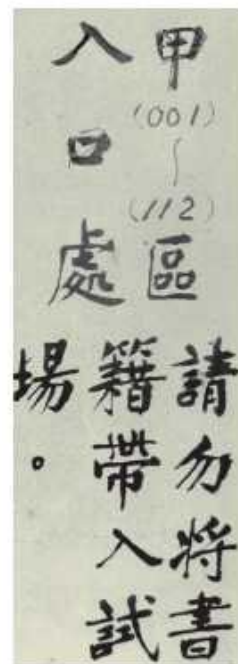 甲(001)〜(112)區
入口處
請勿將書
籍帶入試
場。